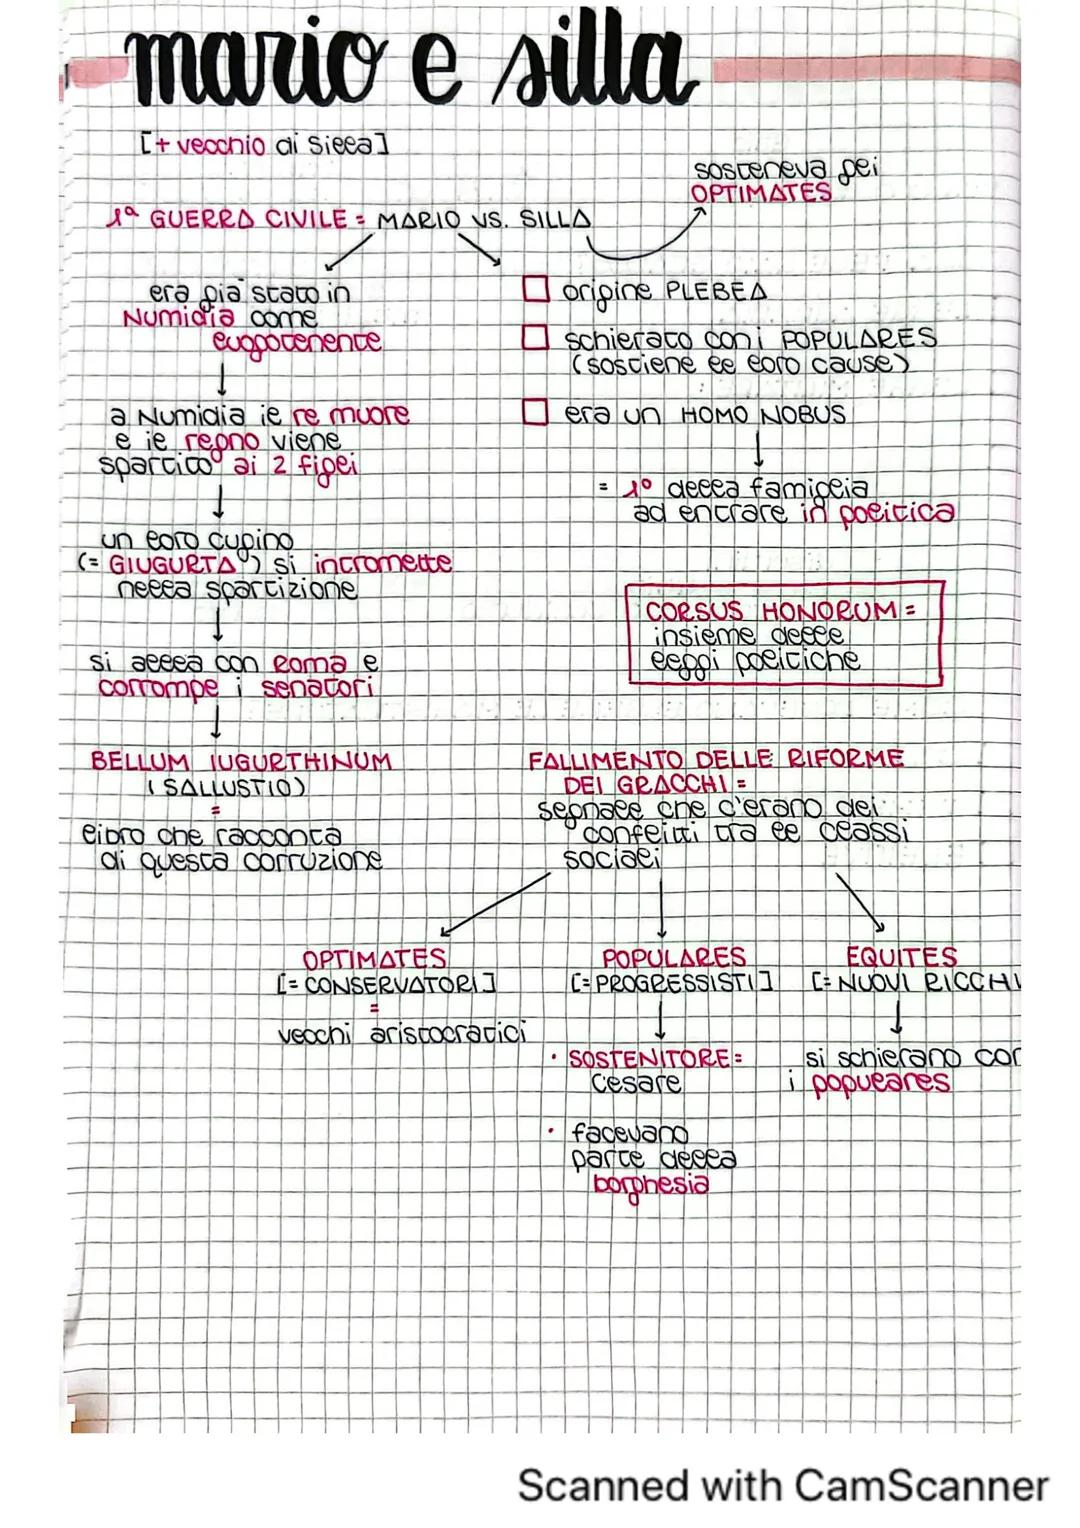 mario e silla
[+ vecchio di Silla]
sosteneva gli
OPTIMATES
1ª GUERRA CIVILE = MARIO VS. SILLA
era già stato in
Numidia come
luogotenente
a Numidia il re muore
e il regno viene
spartito ai 2 figli
un loro cugino
(= GIUGURTA) si incromette
nella spartizione
si allea con Roma e
corrompe i senatori
BELLUM IUGURTHINUM
(SALLUSTIO)
=
libro che racconta
di questa corruzione
origine PLEBEA
schierato con i POPULARES
(sostiene le loro cause)
era un HOMO NOBUS
= 1° della famiglia
ad entrare in politica
CORSUS HONORUM =
insieme delle
leggi politiche
FALLIMENTO DELLE RIFORME
DEI GRACCHI =
segnale che c'erano dei
conflitti tra le classi
sociali
OPTIMATES
[= CONSERVATORI]
=
vecchi aristocratici
POPULARES
[= PROGRESSISTI]
• SOSTENITORE =
Cesare
• facevano
parte della
borghesia
EQUITES
[= NUOVI RICCHI
si schierano con
i populares
Scanned with CamScanner